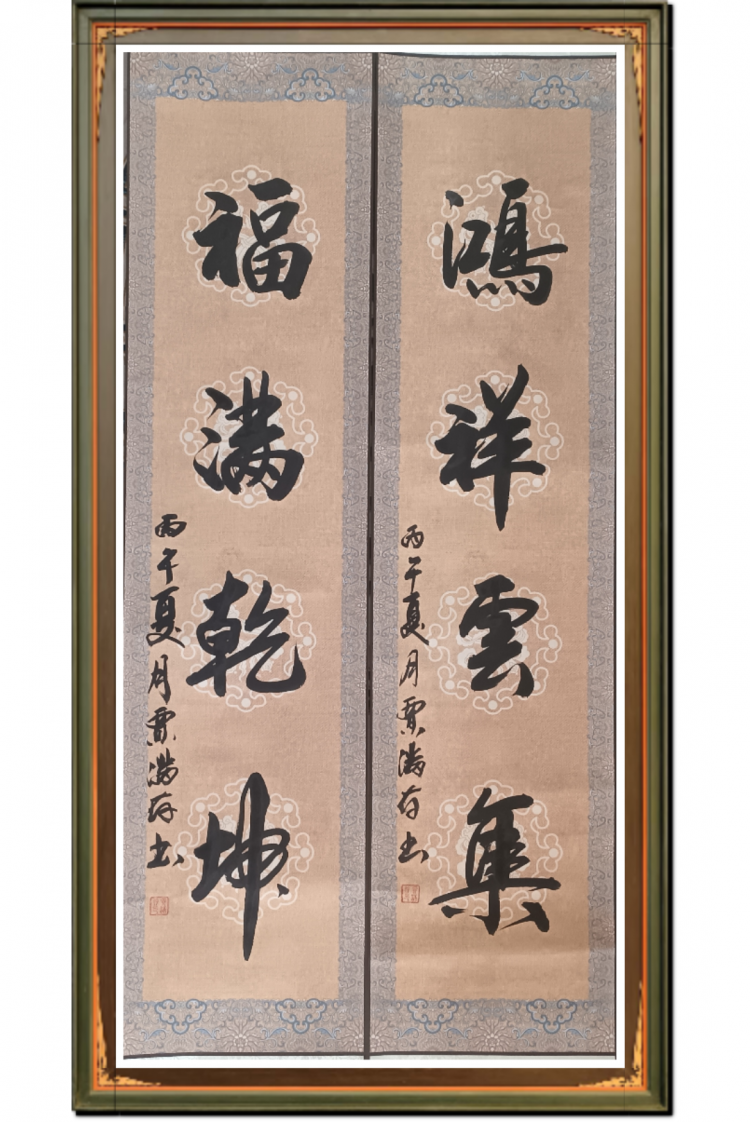 鴻祥雲集
丙午夏月贾满存书
福满乾坤
丙午夏月贾满存书